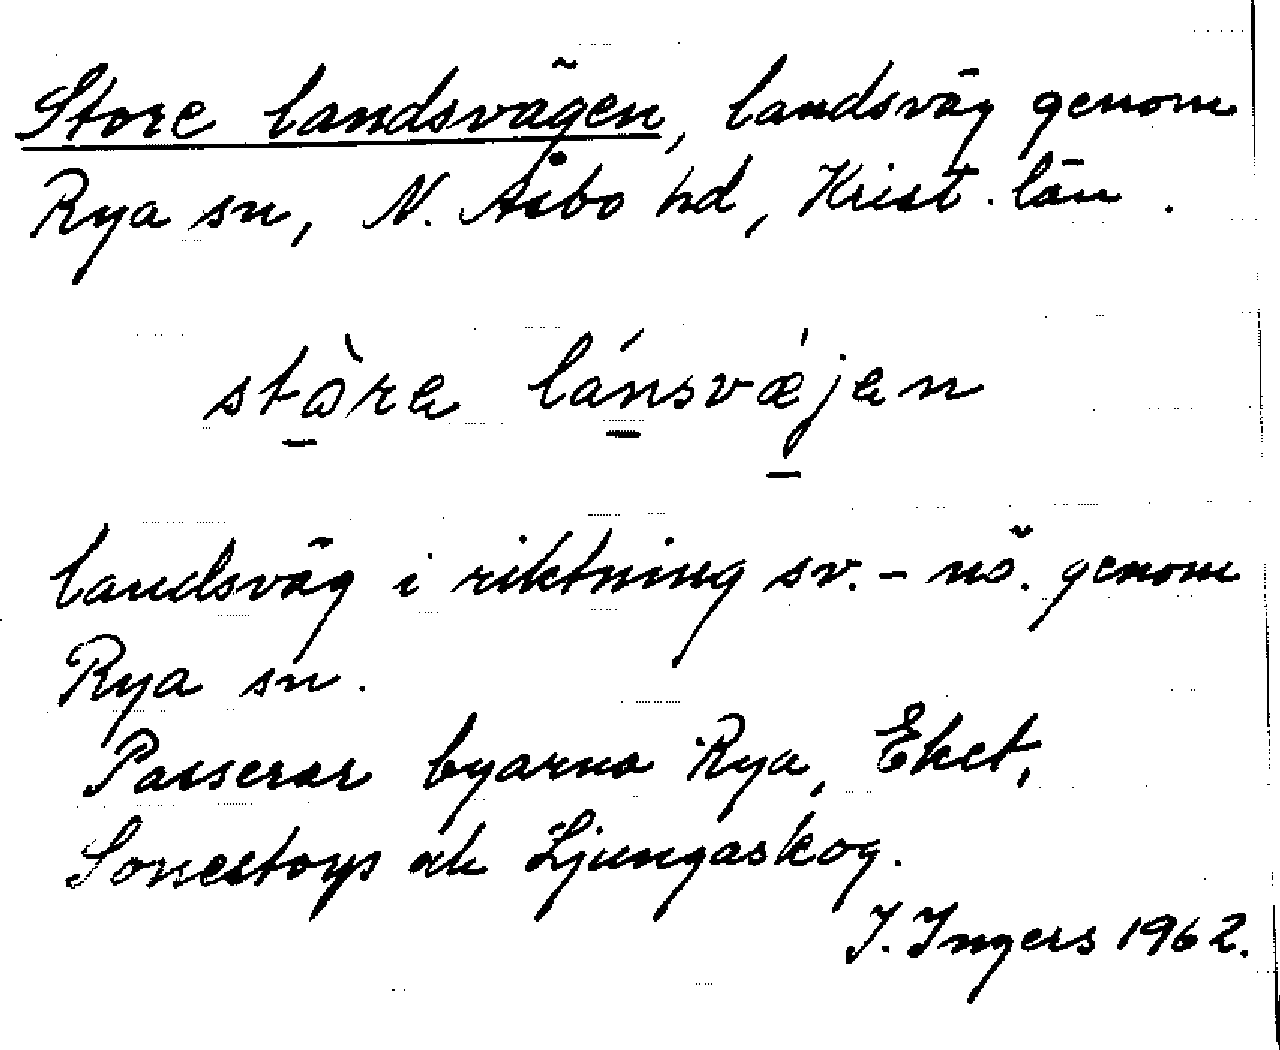 Store landsvägen, landsväg genom
Rya sn, N. Åsbo hd, Krist. län.
stòre lánsvǽjen
landsväg i riktning sv. – nö. genom
Rya sn.
Passerar byarna Rya, Eket,
Sonestorp och Ljungaskog.
I. Ingers 1962.